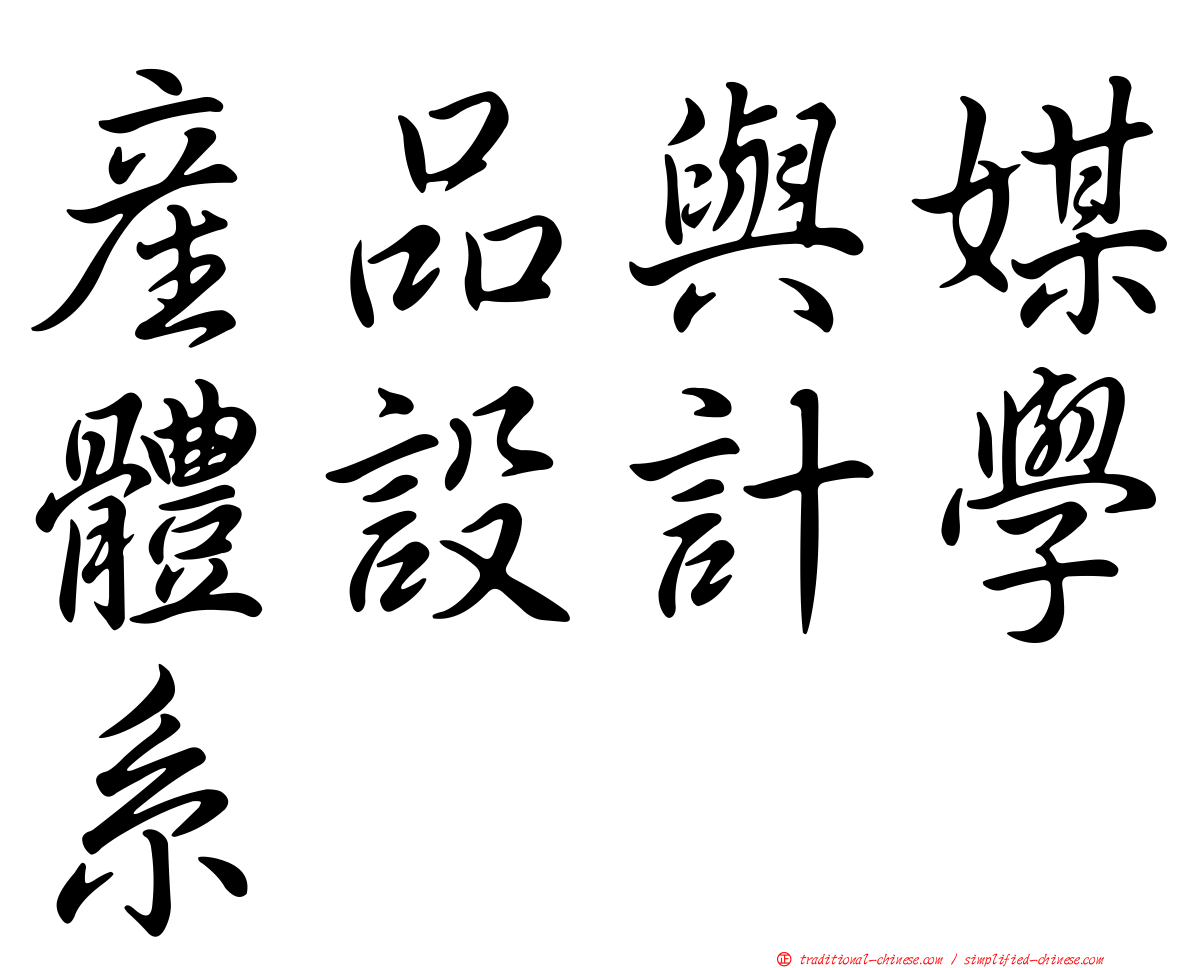 產品與媒
體設計學
系
正 traditional-chinese.com / simplified-chinese.com